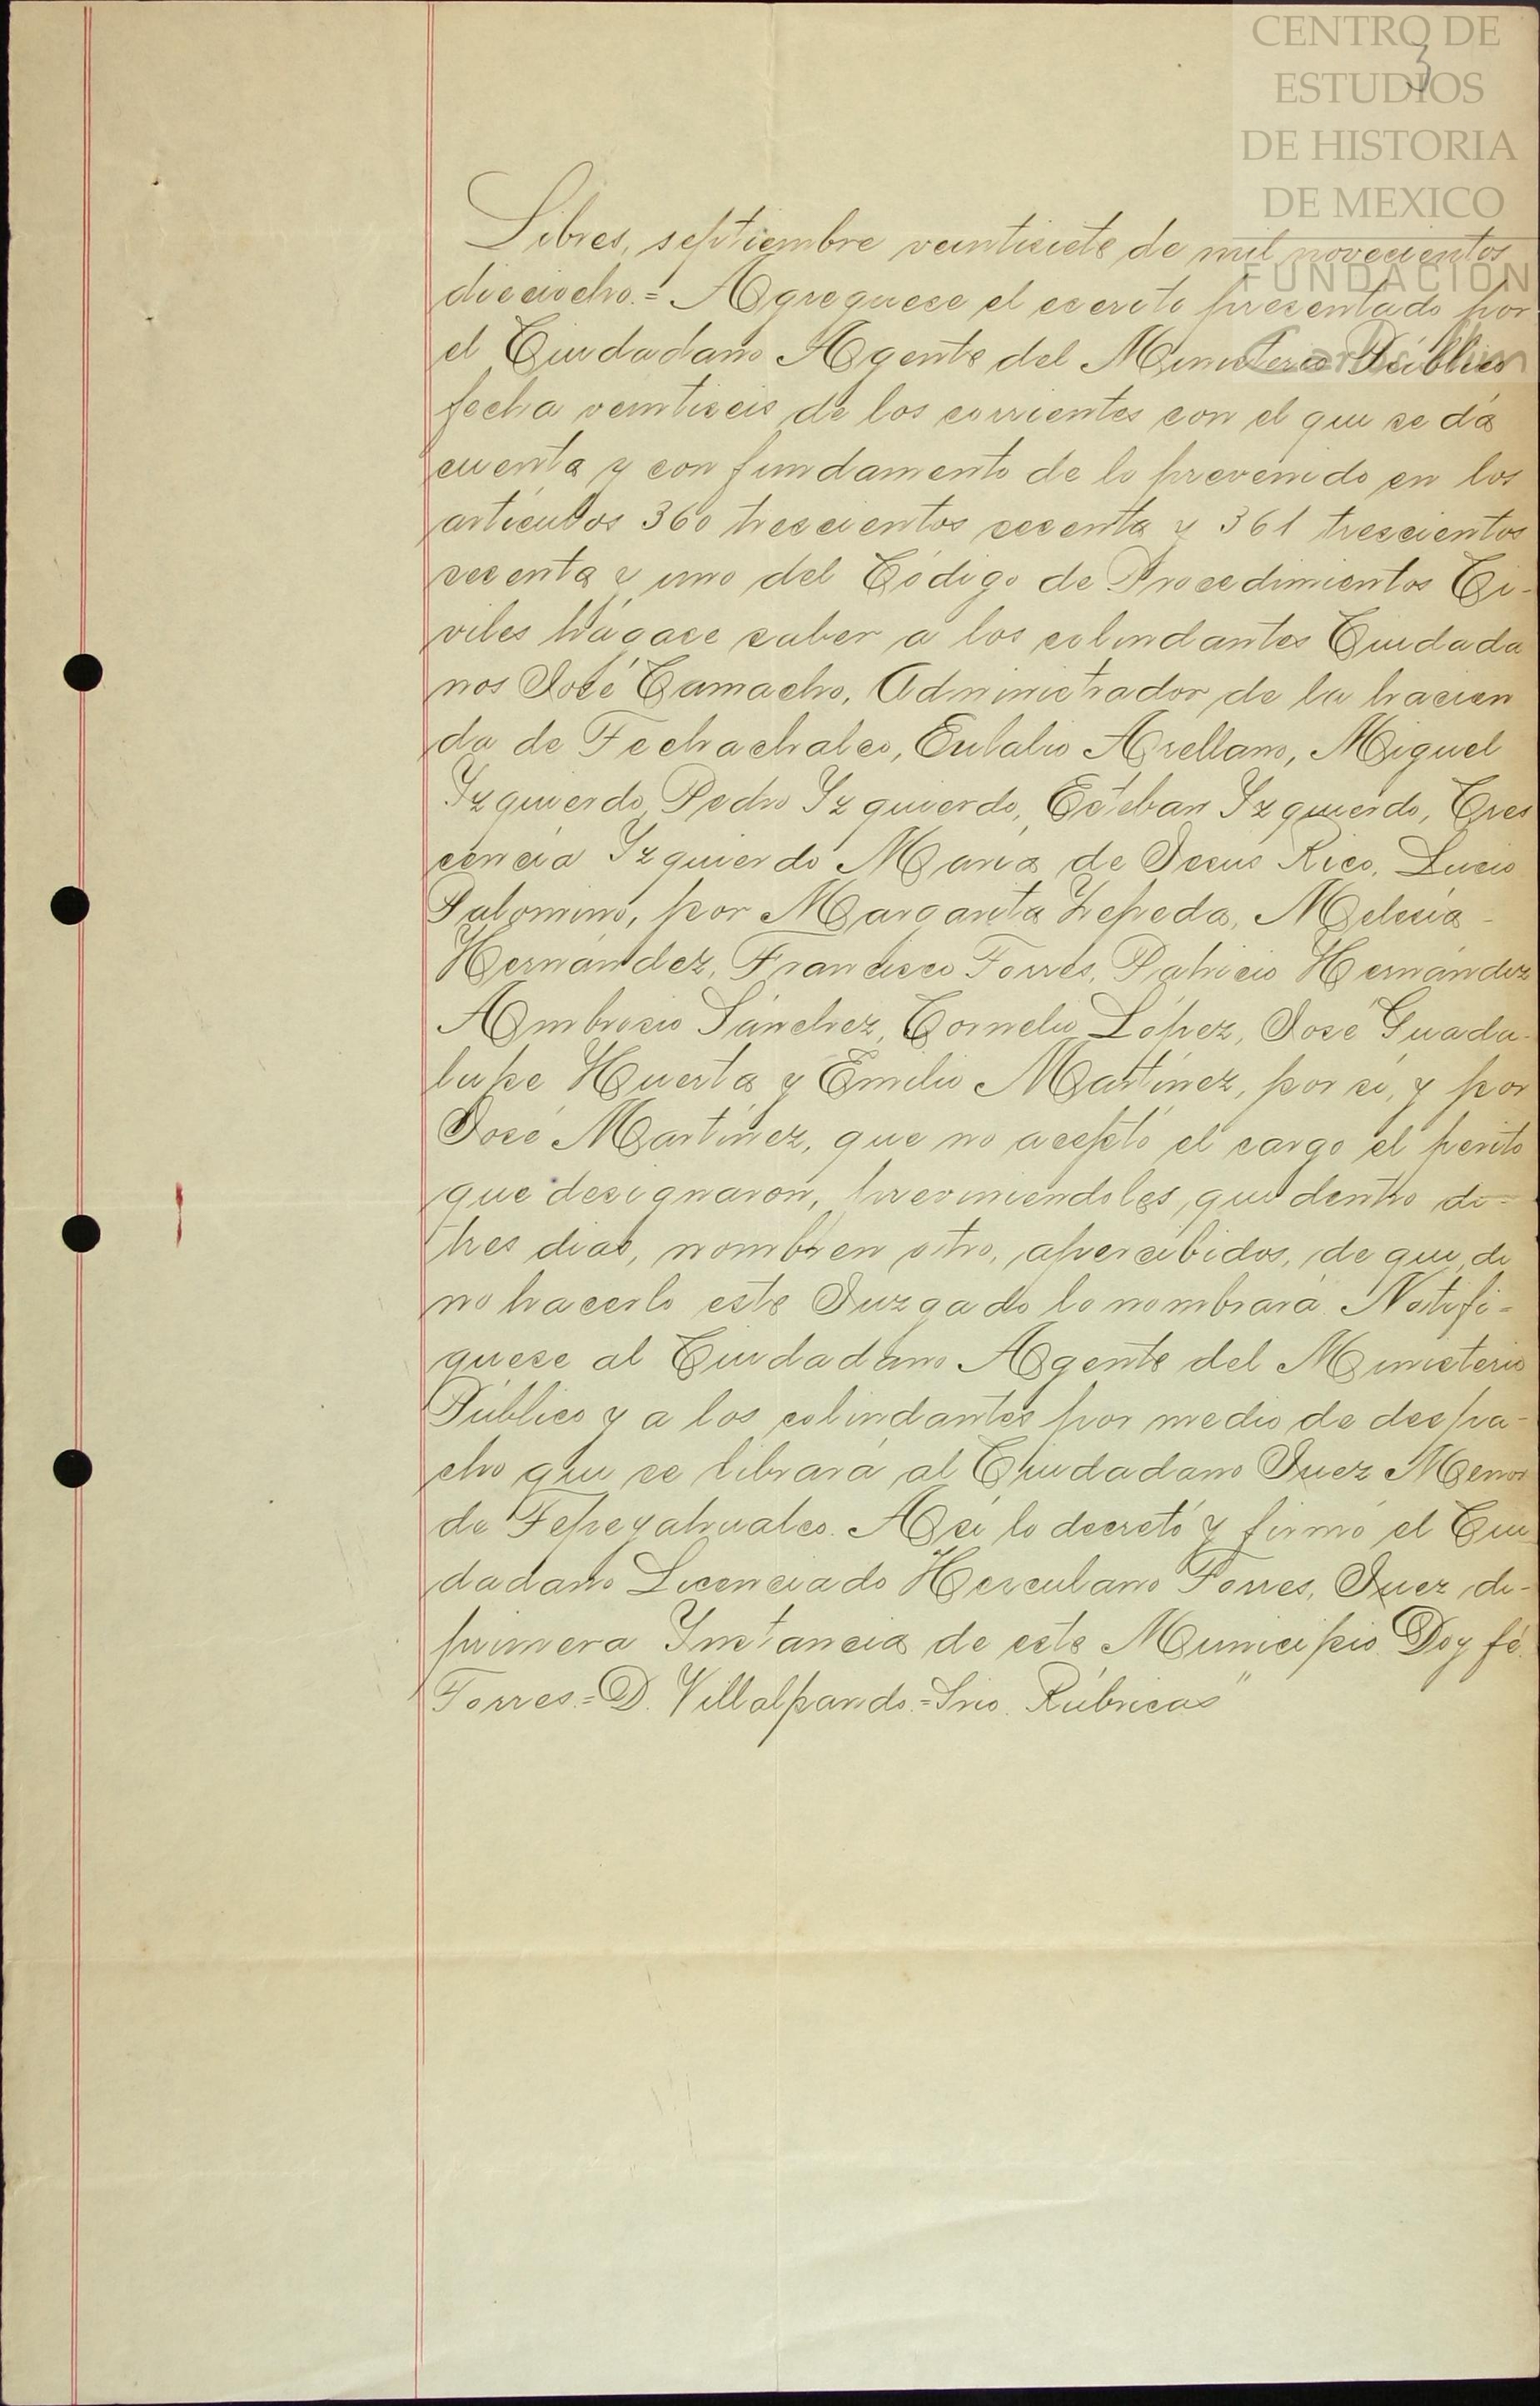 CENTRO DE
ESTUDIOS
DE HISTORIA
DE MEXICO
FUNDACIÓN
3
Libres, septiembre veintisiete de mil novecientos
dieciocho.= Agreguese el escrito presentado por
el Ciudadano Agente del Ministerio Público
fecha veintiseis de los corrientes con el que se dá
cuenta y con fundamento de lo prevenido en los
artículos 360 trescientos sesenta y 361 trescientos
sesenta y uno del Código de Procedimientos Ci-
viles hágase saber a los colindantes Ciudada
nos José Camacho, Administrador de la hacien
da de Techachalco, Eulalio Arellano, Miguel
Izquierdo, Pedro Izquierdo, Esteban Izquierdo, Cres
cencia Izquierdo María de Jesus Rico, Lucio
Palomino, por Margarita Zepeda, Melesia -
Hernández, Francisco Torres, Patricio Hernández
Ambrosio Sánchez, Cornelio López, José Guada-
lupe Huerta y Emilio Martínez, por sí, y por
José Martínez, que no aceptó el cargo el perito
que designaron, previniendoles, que dentro de-
tres dias, nombren otro, apercibidos, de que, de
no hacerlo este Juzgado lo nombrará. Notifi-
quese al Ciudadano Agente del Ministerio
Público y a los colindantes por medio de despa-
cho que se librará al Ciudadano Juez Menor
de Tepeyahualco. Asi lo decretó y firmó el Ciu
dadano Licenciado Herculano Torres, Juez de-
primera Instancia de este Municipio. Doy fé.
Torres.= D. Villalpando.= Srio. Rúbricas"